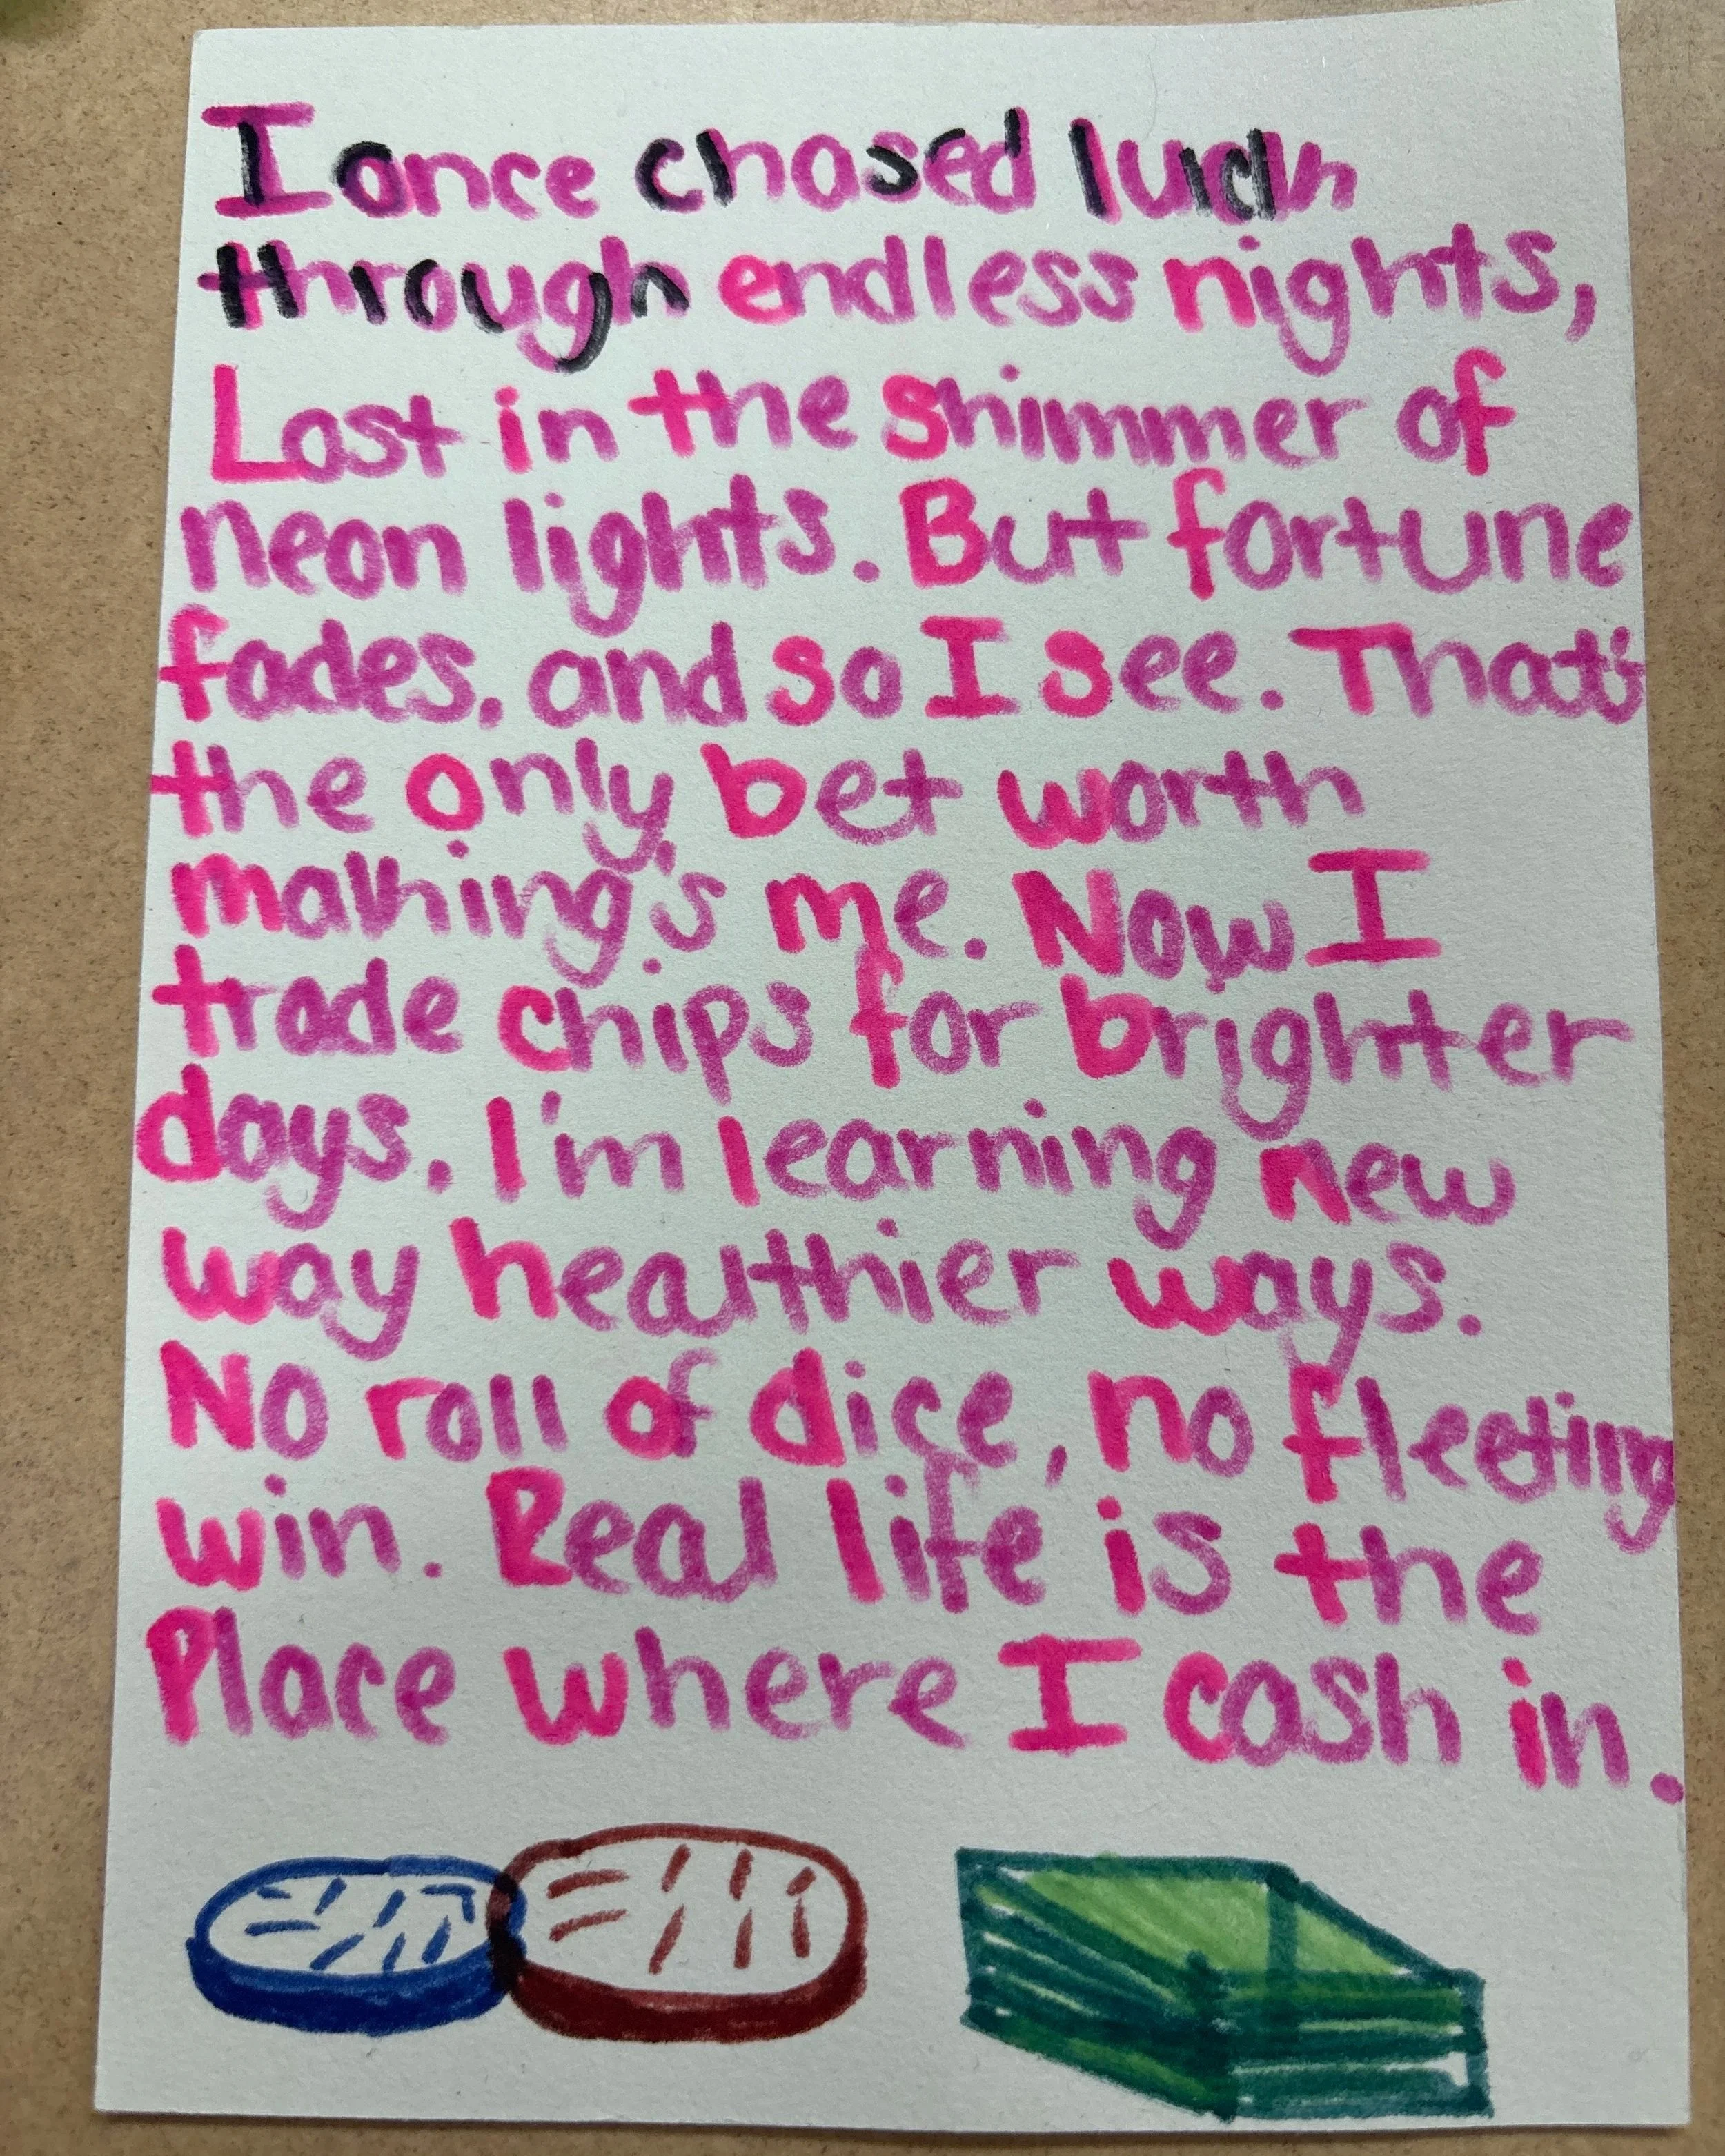 I once chased luck
through endless nights,
Lost in the shimmer of
neon lights. But fortune
fades, and so I see. That's
the only bet worth
making's me. Now I
trade chips for brighter
days. I'm learning new
way healthier ways.
No roll of dice, no fleeting
win. Real life is the
Place where I cash in.